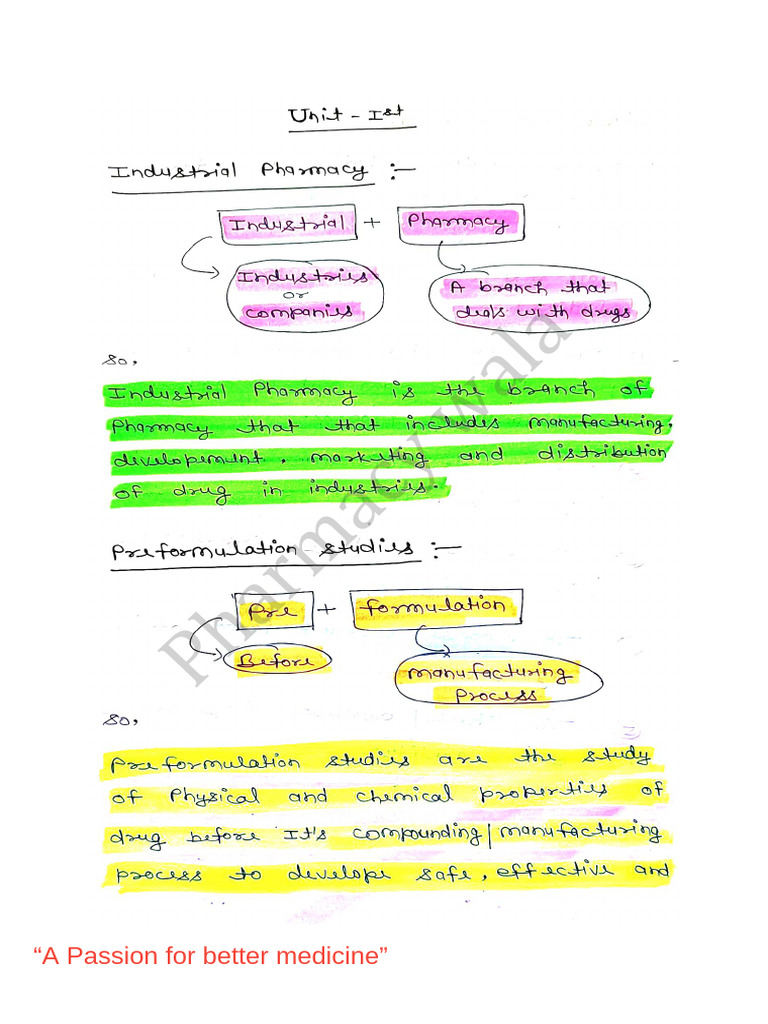 Unit - Ist
Industrial Pharmacy :-
Industrial + Pharmacy
Industries
or
companies
A branch that
deals with drugs
so,
Industrial Pharmacy is the branch of
Pharmacy that that includes manufacturing,
developement, marketing and distribution
of drug in industries.
Preformulation - studies :-
Pre + formulation
Before
manufacturing
Process
so,
Preformulation studies are the study
of Physical and chemical properties of
drug before It's compounding/manufacturing
process to develope safe, effective and
Pharmacy wala
“A Passion for better medicine”